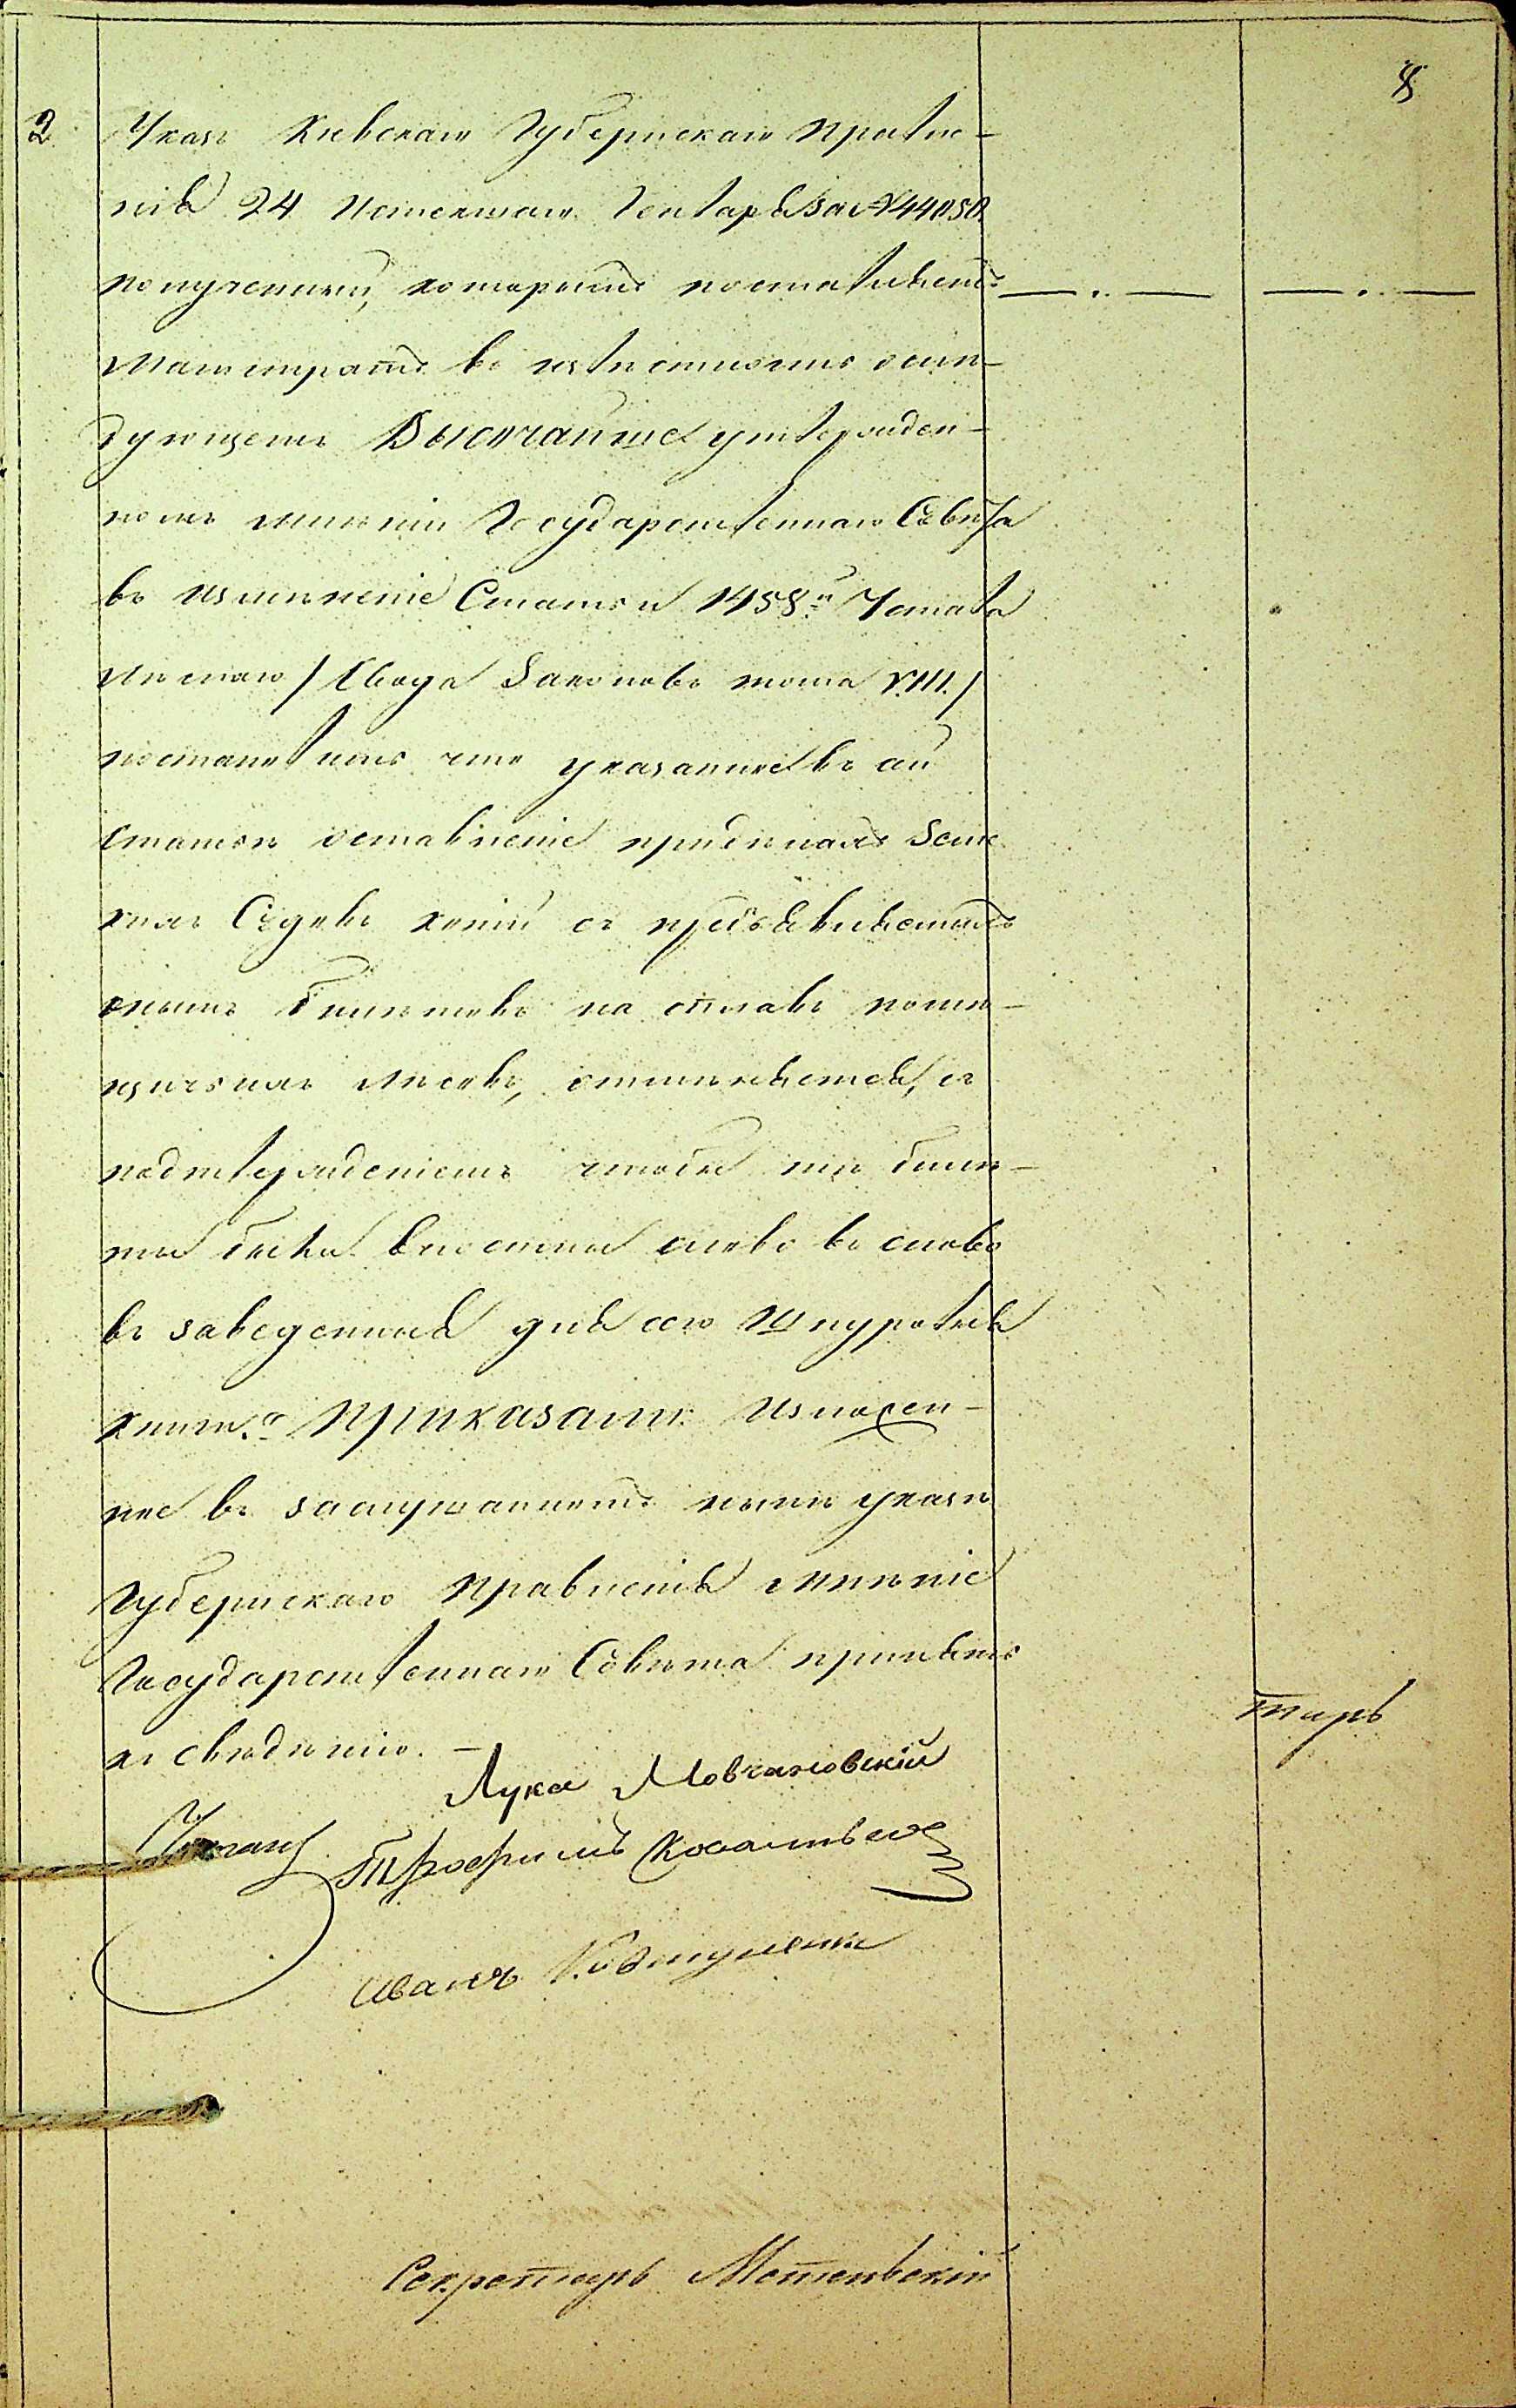 8
2. Указъ Киевскаго Губернскаго Правле-
нія 24 Истекшаго Генваря за №44050.
полученный, которымъ поставляетъ
Магистратъ въ извѣстность о слѣ-
дующемъ Высочайше утвержден-
номъ мнѣніи Государственнаго Совѣта
въ измѣненіе Статьи 1458й Устава
Лѣснаго /Свода Законовъ тома VIII./
постановить что указанное въ сей
статьѣ оставленіе при дѣлахъ Земс
кихъ Судовъ копій съ предъявляемыхъ
онымъ билѣтовъ на сплавъ помѣ-
щичьихъ лѣсовъ, отмѣняется, съ
подтвержденіемъ чтобы тѣ билѣ-
ты были вносимы слово въ слово
въ заведенныя для сего Шнуровыя
книги. Приказали: Изложен-
ное въ заслушанномъ нынѣ указѣ
Губернскаго Правленія мнѣніе
Государственнаго Совѣта принять
къ свѣдѣнію. —
тарь
Лука Мовчановскій
Трофимъ
Иванъ
Секретарь